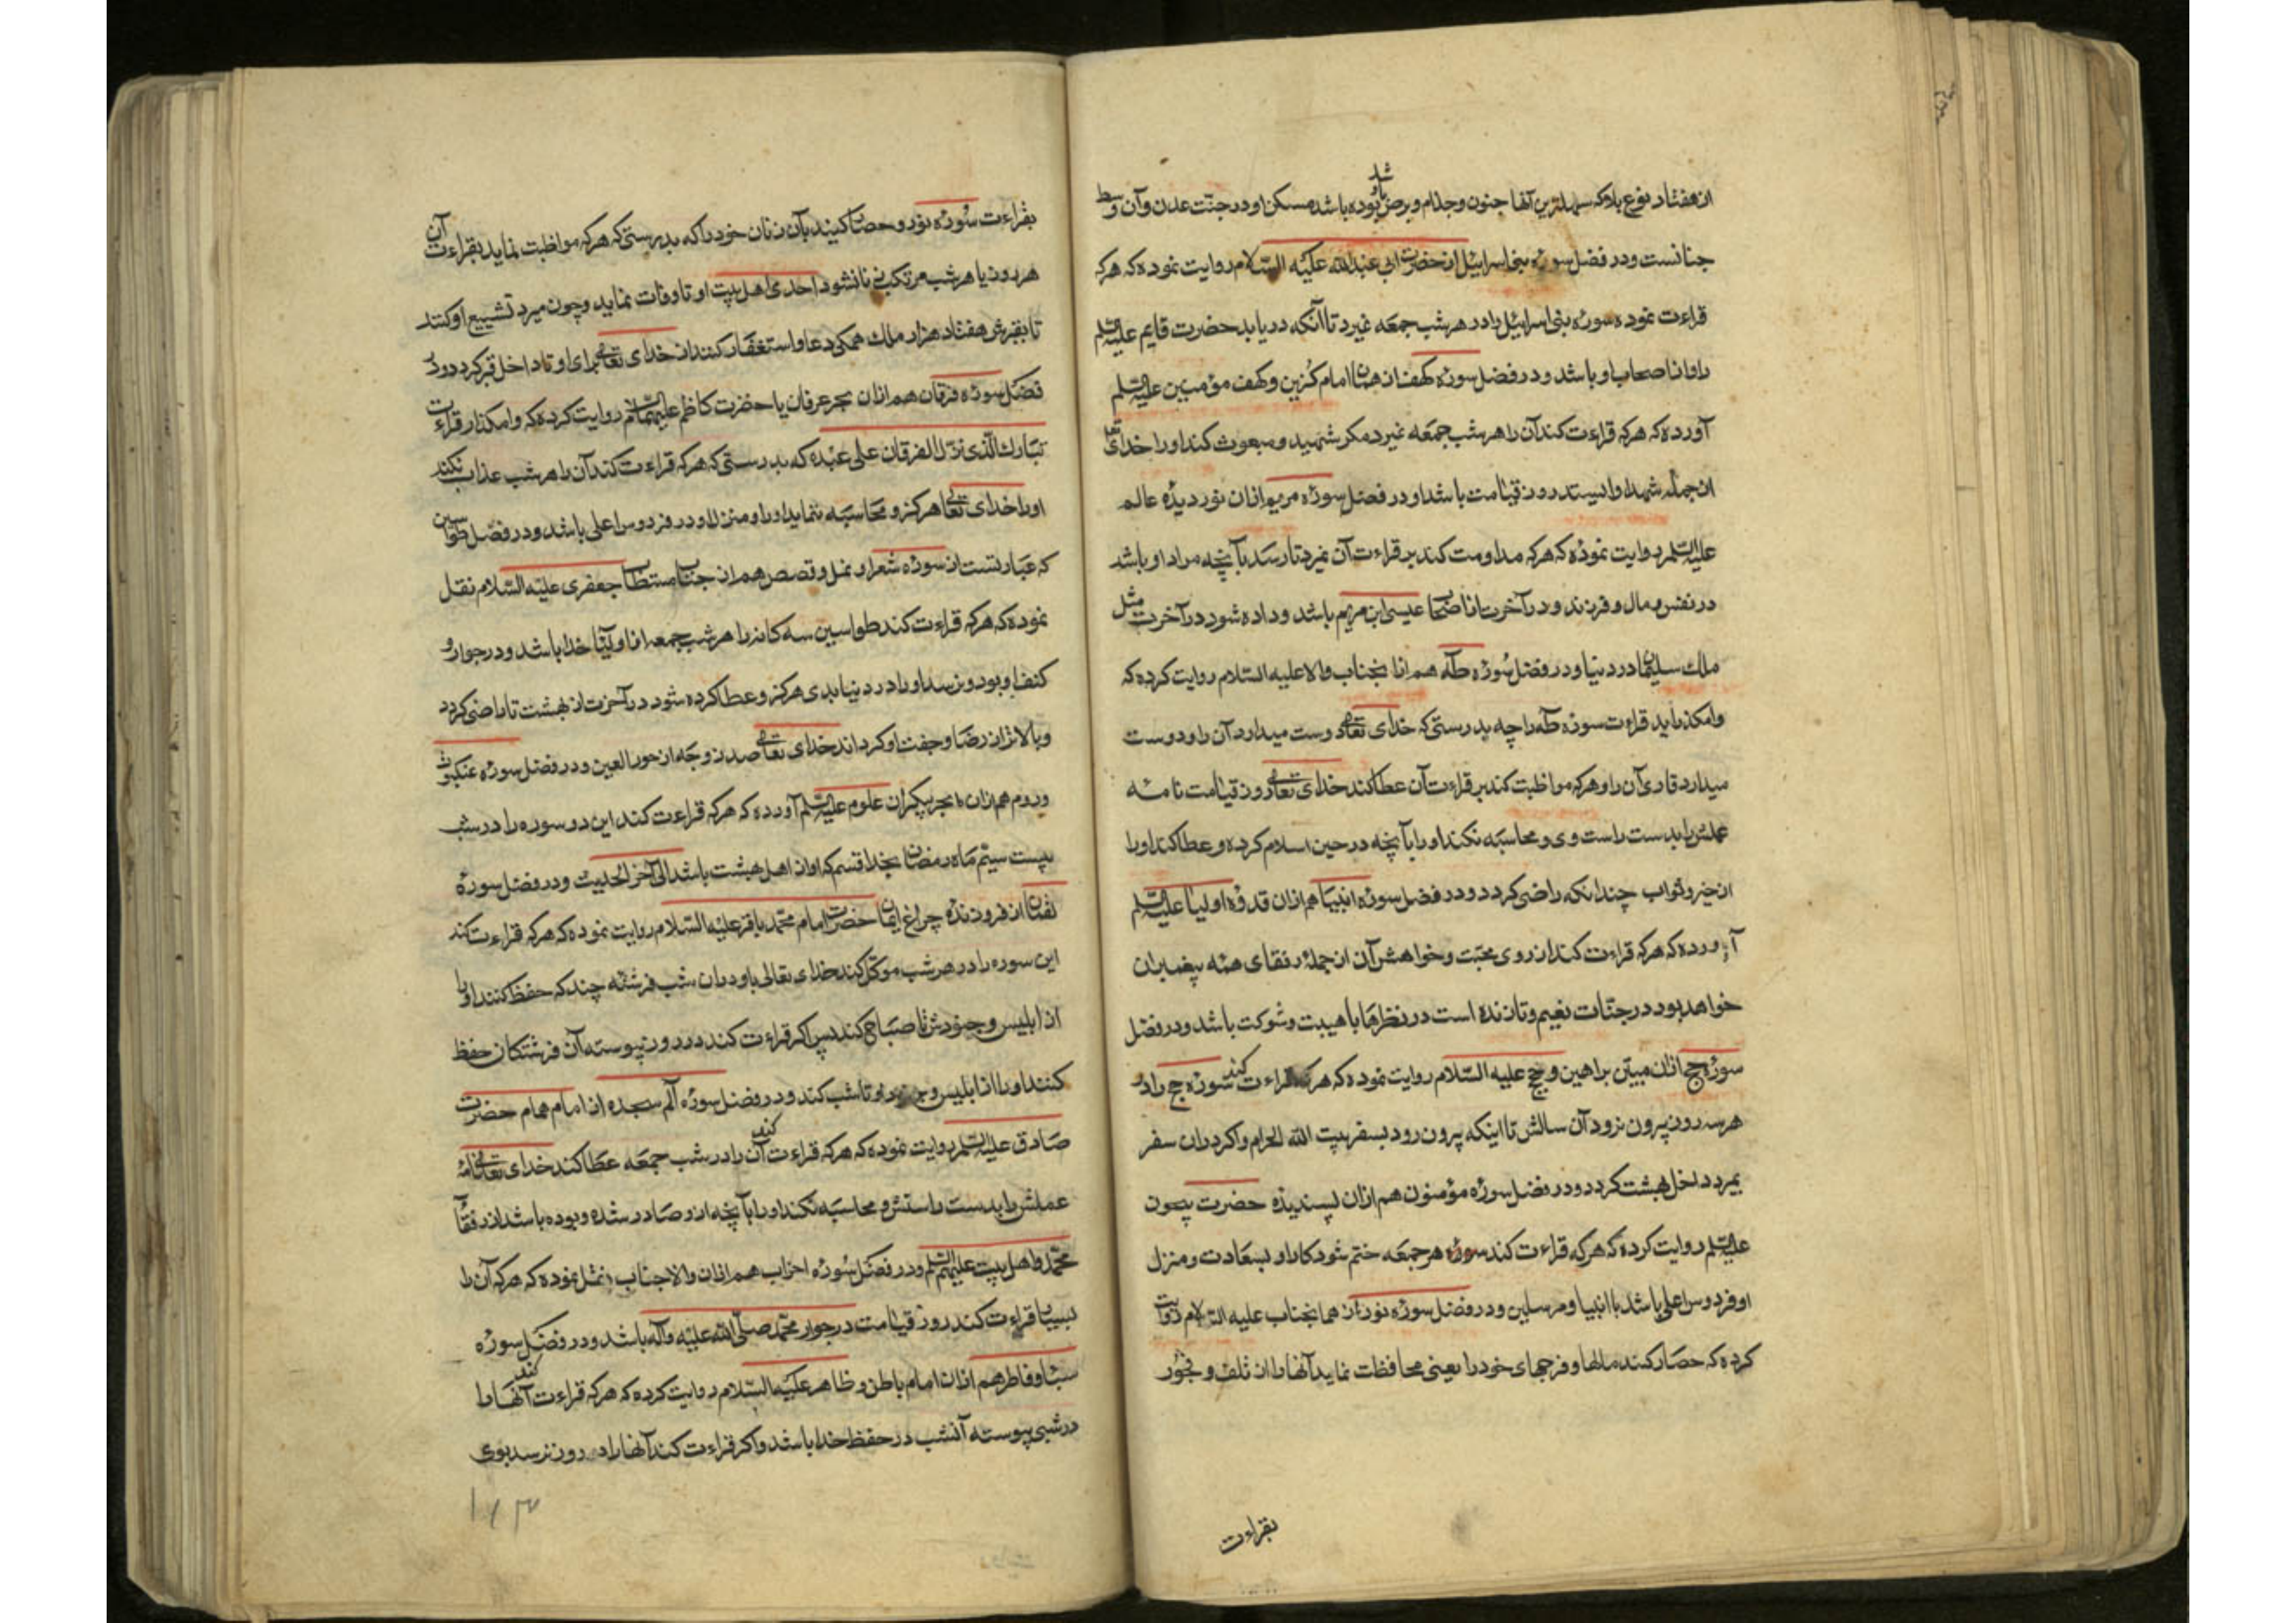 از هفتاد نوع بلا که سهلترین آنها جنون و جذام و برص بوده باشد مسکن او در جنّت عدن و آن وسط
شد
جنانست و در فضل سورهٔ بنی اسرائیل از حضرت ابی عبدالله علیه السّلام روایت نموده که هرکه
قراءت نموده سورهٔ بنی اسرائیل را در هر شب جمعه نمیرد تا آنکه دریابد حضرت قایم علیه السّلم
را و از اصحاب او باشد و در فضل سورهٔ کهف از همان امام گزین و کهف مؤمنین علیه السّلم
آورده که هرکه قراءت کند آن را هر شب جمعه نمیرد مگر شهید و مبعوث کند او را خدای تعا
از جمله شهدا و ایستد روز قیامت با شهدا و در فضل سورهٔ مریم از آن نور دیدهٔ عالم
علیه السّلم روایت نموده که هرکه مداومت کند بر قراءت آن نمیرد تا رسد بآنچه مراد او باشد
در نفس و مال و فرزند و در آخرت از اصحاب عیسی ابن مریم باشد و داده شود در آخرت مثل
ملک سلیمان در دنیا و در فضل سورهٔ طه هم از آنجناب والا علیه السّلام روایت کرده که
وامگذارید قراءت سورهٔ طه را چه بدرستی که خدای تعالی دوست میدارد آن را و دوست
میدارد قاری آن را و هرکه مواظبت کند بر قراءت آن عطا کند خدای تعالی روز قیامت نامه
عملش را بدست راست وی و محاسبه نکند او را بآنچه در حین اسلام کرده و عطا کند او را
از خیر و ثواب چندانکه راضی گردد و در فضل سورهٔ انبیا هم از آن قدوهٔ اولیا علیه السّلم
آورده که هرکه قراءت کند از روی محبّت و خواهش آن از جمله رفقای همه پیغمبران
خواهد بود در جنّات نعیم و تا زنده است در نظرها با هیبت و شوکت باشد و در فضل
سورهٔ حج از آن مبیّن براهین و حجج علیه السّلام روایت نموده که هرکه قراءت کند سورهٔ حج را در
هر سه روز بیرون نرود آن سالش تا اینکه بیرون رود بسفر بیت الله الحرام و اگر در آن سفر
بمیرد داخل بهشت گردد و در فضل سورهٔ مؤمنون هم از آن پسندیدهٔ حضرت بیچون
علیه السّلم روایت کرده که هرکه قراءت کند سورهٔ هر جمعه ختم شود کار او بسعادت و منزل
او فردوس اعلی باشد با انبیا و مرسلین و در فضل سورهٔ نور از همانجناب علیه السّلام روایت
کرده که حصار کنید مالها و فرجهای خود را یعنی محافظت نماید آنها را از تلف و فجور
بقراءت
بقراءت سورهٔ نور و حصار کنید بآن زنان خود را که بدرستی که هرکه مواظبت نماید بقراءت آن
هر روز یا هر شب مرتکب زنا نشود احدی اهل بیت او تا وفات نماید و چون میرد تشییع او کنند
تا بقبرش هفتاد هزار ملک همگی دعا و استغفار کنند از خدای تعالی برای او تا داخل قبر گردد و در
فضل سورهٔ فرقان هم از آن بحر عرفان یا حضرت کاظم علیهما السّلام روایت کرده که وامگذار قراءت
تبارک الّذی نزّل الفرقان علی عبده که بدرستی که هرکه قراءت کند آن را هر شب عذاب نکند
او را خدای تعالی هرگز و محاسبه ننماید او را و منزل او در فردوس اعلی باشد و در فضل طواسین
که عبارتست از سورهٔ شعرا و نمل و قصص هم از جناب مستطاب جعفری علیه السّلام نقل
نموده که هرکه قراءت کند طواسین سه گانه را هر شب جمعه از اولیا خدا باشد و در جوار و
کنف او بود و نرسد او را در دنیا بدی هرگز و عطا کرده شود در آخرت از بهشت تا راضی گردد
و بالاتر از رضا و جفت او گرداند خدای تعالی صد زوجه از حور العین و در فضل سورهٔ عنکبوت
و روم هم از آن بحر بیکران علوم علیه السّلم آورده که هرکه قراءت کند این دو سوره را در شب
بیست سیّم ماه رمضان بخدا قسم که او از اهل بهشت باشد الی آخر الحدیث و در فضل سورهٔ
لقمان از فروزندهٔ چراغ ایمان حضرت امام محمّد باقر علیه السّلام روایت نموده که هرکه قراءت کند
این سوره را در هر شب موکّل کند خدای تعالی باو در آن شب فرشته چند که حفظ کنند او را
از ابلیس و جنودش تا صباح کند پس اگر قراءت کند در روز پیوسته آن فرشتگان حفظ
کنند او را از ابلیس و جنود او تا شب کند و در فضل سورهٔ الم سجده از امام همام حضرت
صادق علیه السّلم روایت نموده که هرکه قراءت کند آن را در شب جمعه عطا کند خدای تعالی نامهٔ
عملش را بدست راستش و محاسبه نکند او را بآنچه از و صادر شده و بوده باشد از رفقآ
محمّد و اهل بیت علیهم السّلم و در فضل سورهٔ احزاب هم از آن والاجناب نقل نموده که هرکه آن را
بسیار قراءت کند روز قیامت در جوار محمّد صلّی الله علیه وآله باشد و در فضل سورهٔ
سبا و فاطر هم از آن امام باطن و ظاهر علیه السّلام روایت کرده که هرکه قراءت کند آنها را
در شبی پیوسته آنشب در حفظ خدا باشد و اگر قراءت کند آنها را در روز نرسد بوی
۱۸۳